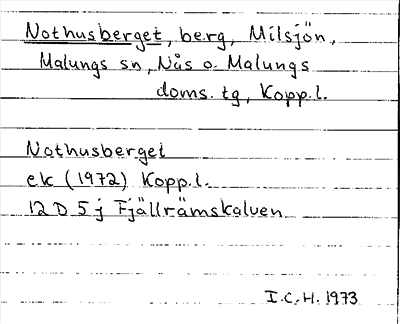 Nothusberget, berg, Milsjön,
Malungs sn, Nås o. Malungs
doms. tg, Kopp.l.
Nothusberget
ek (1972) Kopp.l.
12 D 5 j Fjällrämskalven
I.C.H. 1973